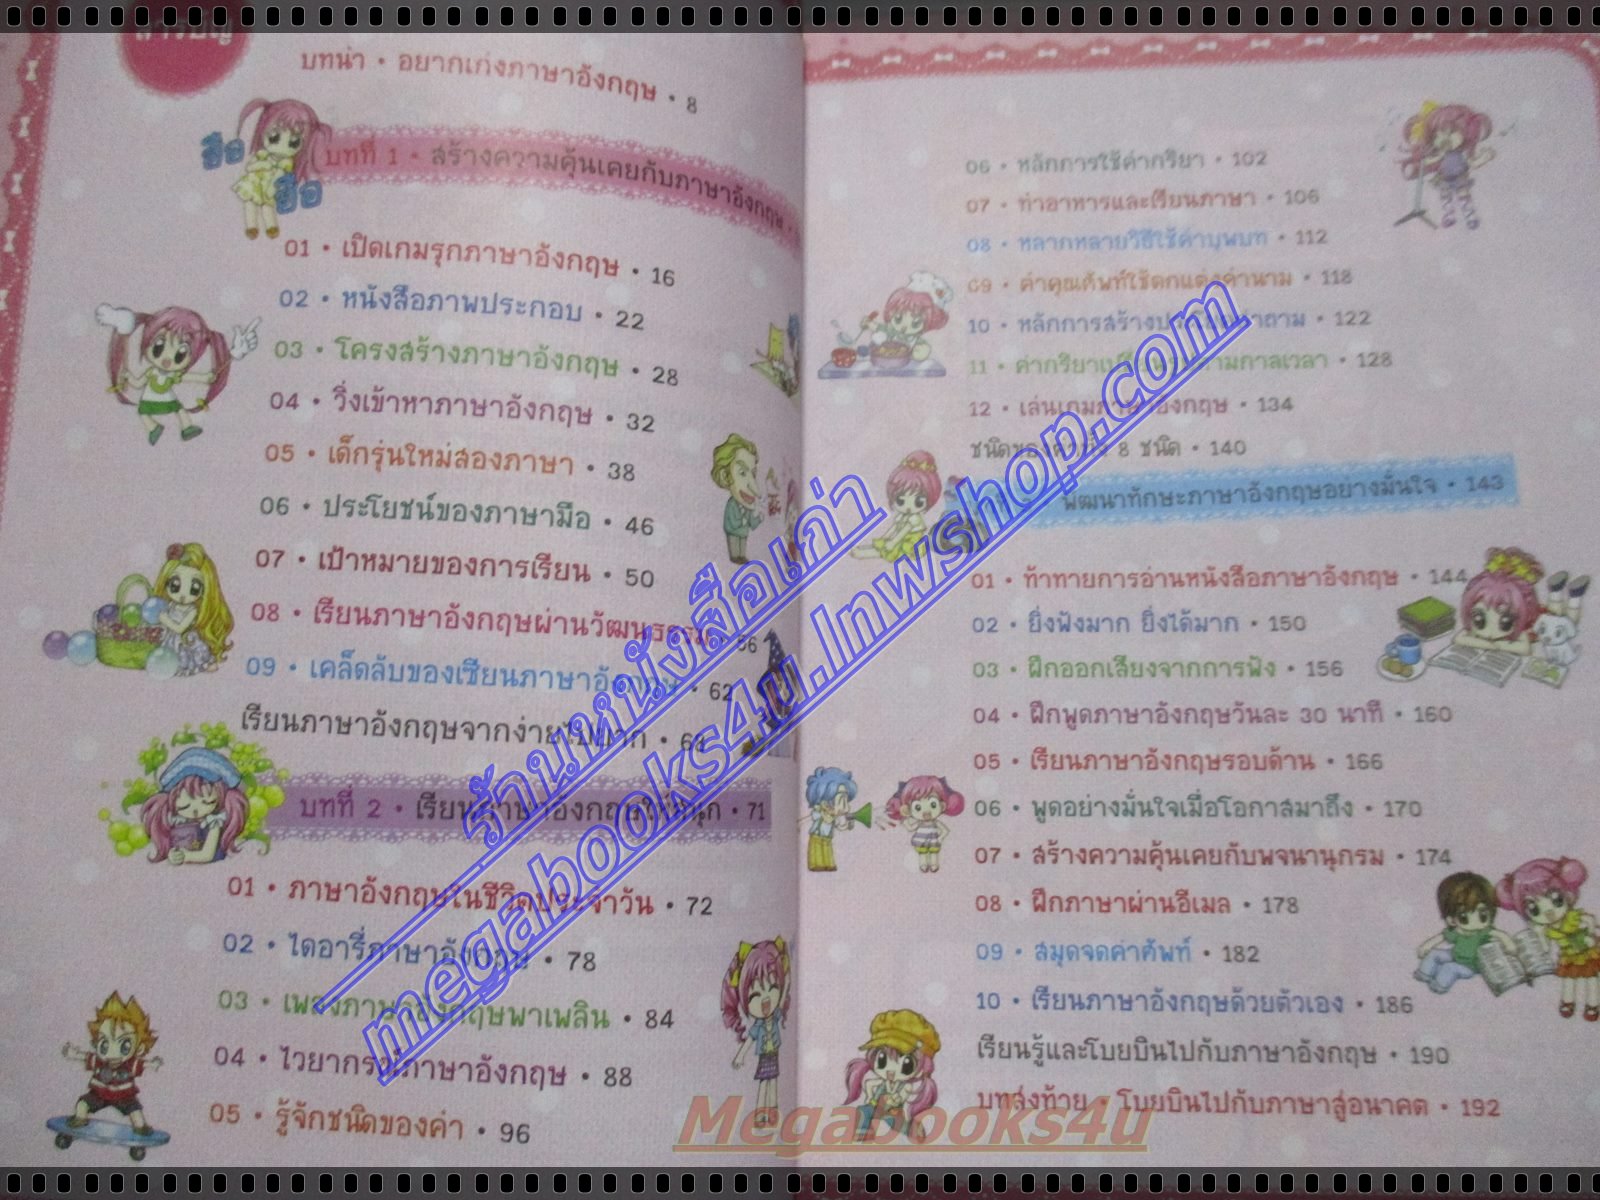 สารบัญ
บทนำ • อยากเก่งภาษาอังกฤษ • 8
ฮือ
ฮือ
บทที่ 1 • สร้างความคุ้นเคยกับภาษาอังกฤษ •
01 • เปิดเกมรุกภาษาอังกฤษ • 16
02 • หนังสือภาพประกอบ • 22
03 • โครงสร้างภาษาอังกฤษ • 28
04 • วิ่งเข้าหาภาษาอังกฤษ • 32
05 • เด็กรุ่นใหม่สองภาษา • 38
06 • ประโยชน์ของภาษามือ • 46
07 • เป้าหมายของการเรียน • 50
08 • เรียนภาษาอังกฤษผ่านวัฒนธรรม • 56
09 • เคล็ดลับของเซียนภาษาอังกฤษ • 62
เรียนภาษาอังกฤษจากง่ายไปยาก •
บทที่ 2 • เรียนภาษาอังกฤษให้สนุก • 71
01 • ภาษาอังกฤษในชีวิตประจำวัน • 72
02 • ไดอารี่ภาษาอังกฤษ • 78
03 • เพลงภาษาอังกฤษพาเพลิน • 84
04 • ไวยากรณ์ภาษาอังกฤษ • 88
05 • รู้จักชนิดของคำ • 96
06 • หลักการใช้คำกริยา • 102
07 • ทำอาหารและเรียนภาษา • 106
08 • หลากหลายวิธีใช้คำบุพบท • 112
09 • คำคุณศัพท์ใช้ตกแต่งคำนาม • 118
10 • หลักการสร้างประโยคคำถาม • 122
11 • คำกริยาเปลี่ยนรูปตามกาลเวลา • 128
12 • เล่นเกมภาษาอังกฤษ • 134
ชนิดของคำทั้ง 8 ชนิด • 140
พัฒนาทักษะภาษาอังกฤษอย่างมั่นใจ • 143
01 • ท้าทายการอ่านหนังสือภาษาอังกฤษ • 144
02 • ยิ่งฟังมาก ยิ่งได้มาก • 150
03 • ฝึกออกเสียงจากการฟัง • 156
04 • ฝึกพูดภาษาอังกฤษวันละ 30 นาที • 160
05 • เรียนภาษาอังกฤษรอบด้าน • 166
06 • พูดอย่างมั่นใจเมื่อโอกาสมาถึง • 170
07 • สร้างความคุ้นเคยกับพจนานุกรม • 174
08 • ฝึกภาษาผ่านอีเมล • 178
09 • สมุดจดคำศัพท์ • 182
10 • เรียนภาษาอังกฤษด้วยตัวเอง • 186
เรียนรู้และโบยบินไปกับภาษาอังกฤษ • 190
บทส่งท้าย • โบยบินไปกับภาษาสู่อนาคต • 192
ร้านหนังสือเก่า
megabooks4u.lnwshop.com
Megabooks4u